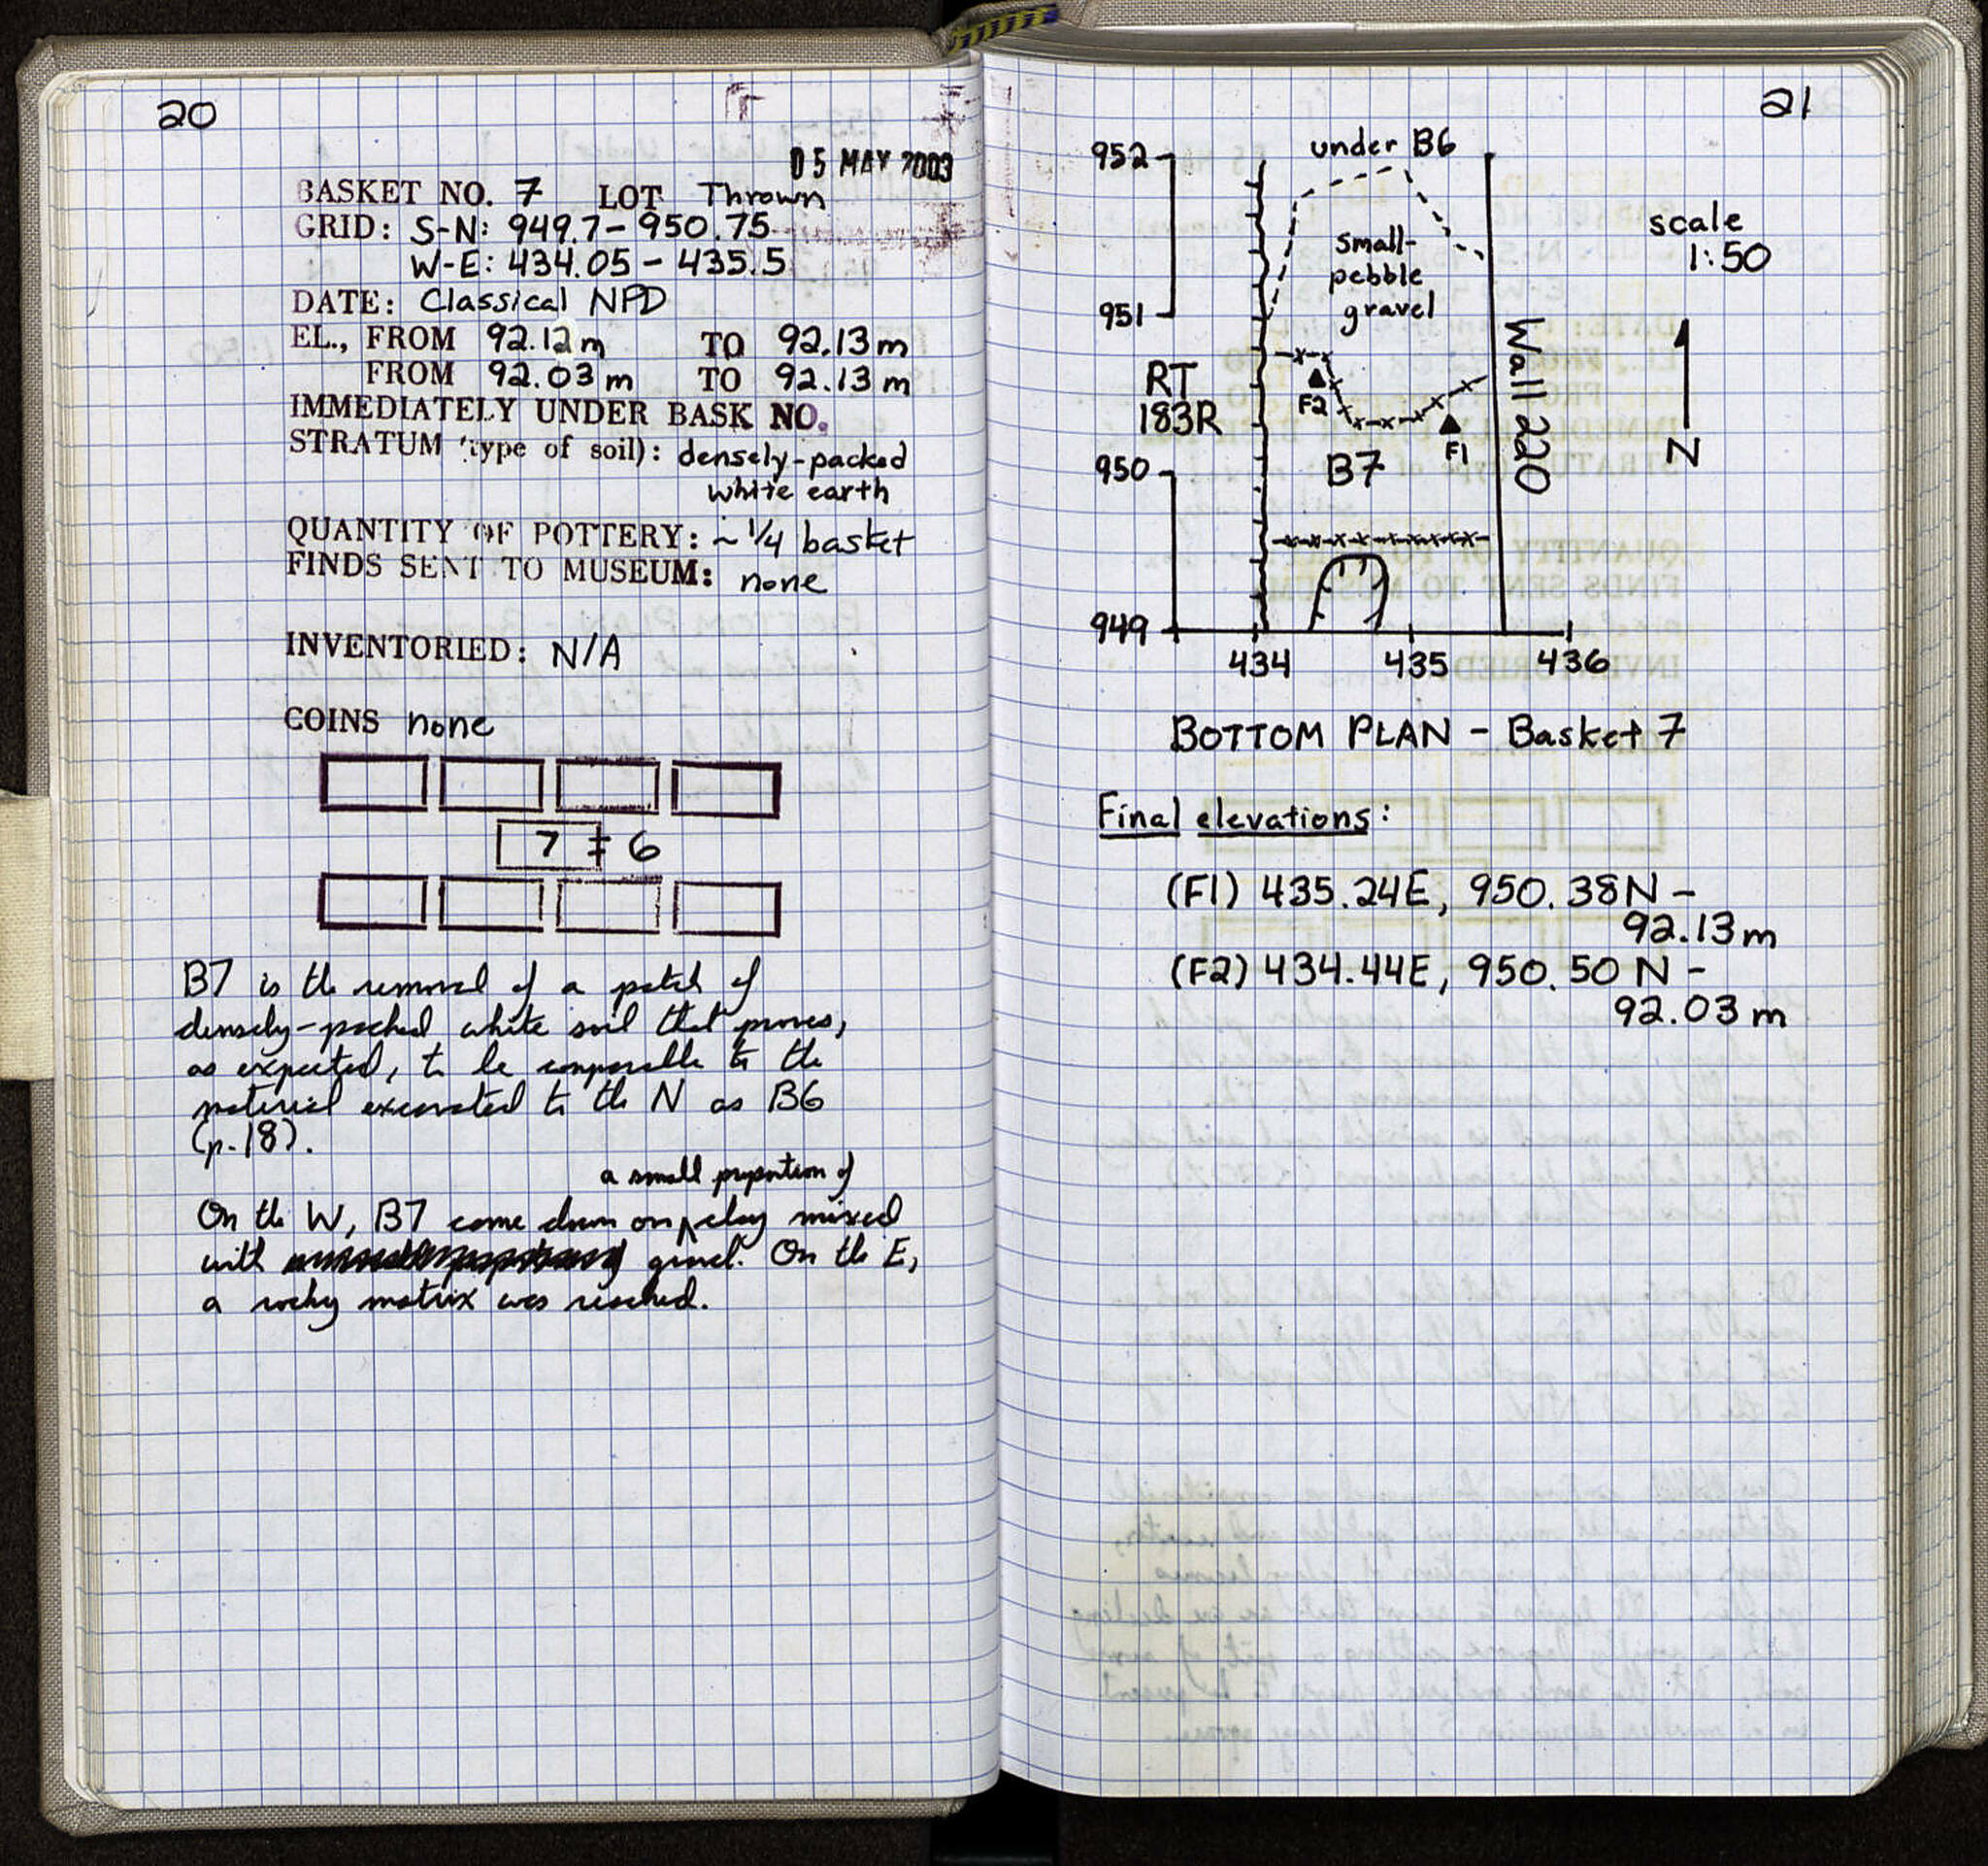 20
05 MAY 2003
BASKET NO. 7 LOT Thrown
GRID: S-N: 949.7-950.75
W-E: 434.05-435.5
DATE: Classical NPD
EL., FROM 92.12m TO 92.13m
FROM 92.03m TO 92.13m
IMMEDIATELY UNDER BASK NO.
STRATUM (type of soil): densely-packed
white earth
QUANTITY OF POTTERY: ~1/4 basket
FINDS SENT TO MUSEUM: none
INVENTORIED: N/A
COINS none
7 ‡ 6
B7 is the removal of a patch of
densely-packed white soil that proves,
as expected, to be comparable to the
material excavated to the N as B6
(p.18).
a small proportion of
On the W, B7 came down on ∧ clay mixed
with gravel. On the E,
a rocky matrix was reached.
21
952
under B6
scale
1:50
small-
pebble
gravel
951
Wall 220
RT
183R
F2
F1
N
950
B7
949
434 435 436
BOTTOM PLAN - Basket 7
Final elevations:
(F1) 435.24E, 950.38N -
92.13m
(F2) 434.44E, 950.50N -
92.03m